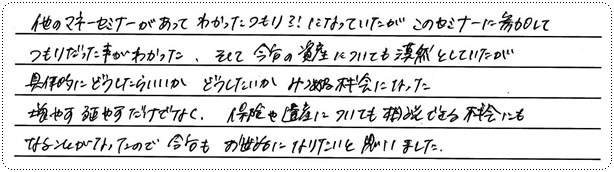 他のマネーセミナーがあって わかったつもり?! になっていたが このセミナーに参加して
つもりだった事がわかった、そして 今后の資産についても漠然としていたが
具体的にどうしたらいいか どうしたいか みつめる機会になった
増やす 殖やすだけでなく、保険や遺産についても相談できる機会にも
なることがなったので 今后も お世話になりたいと思いました.